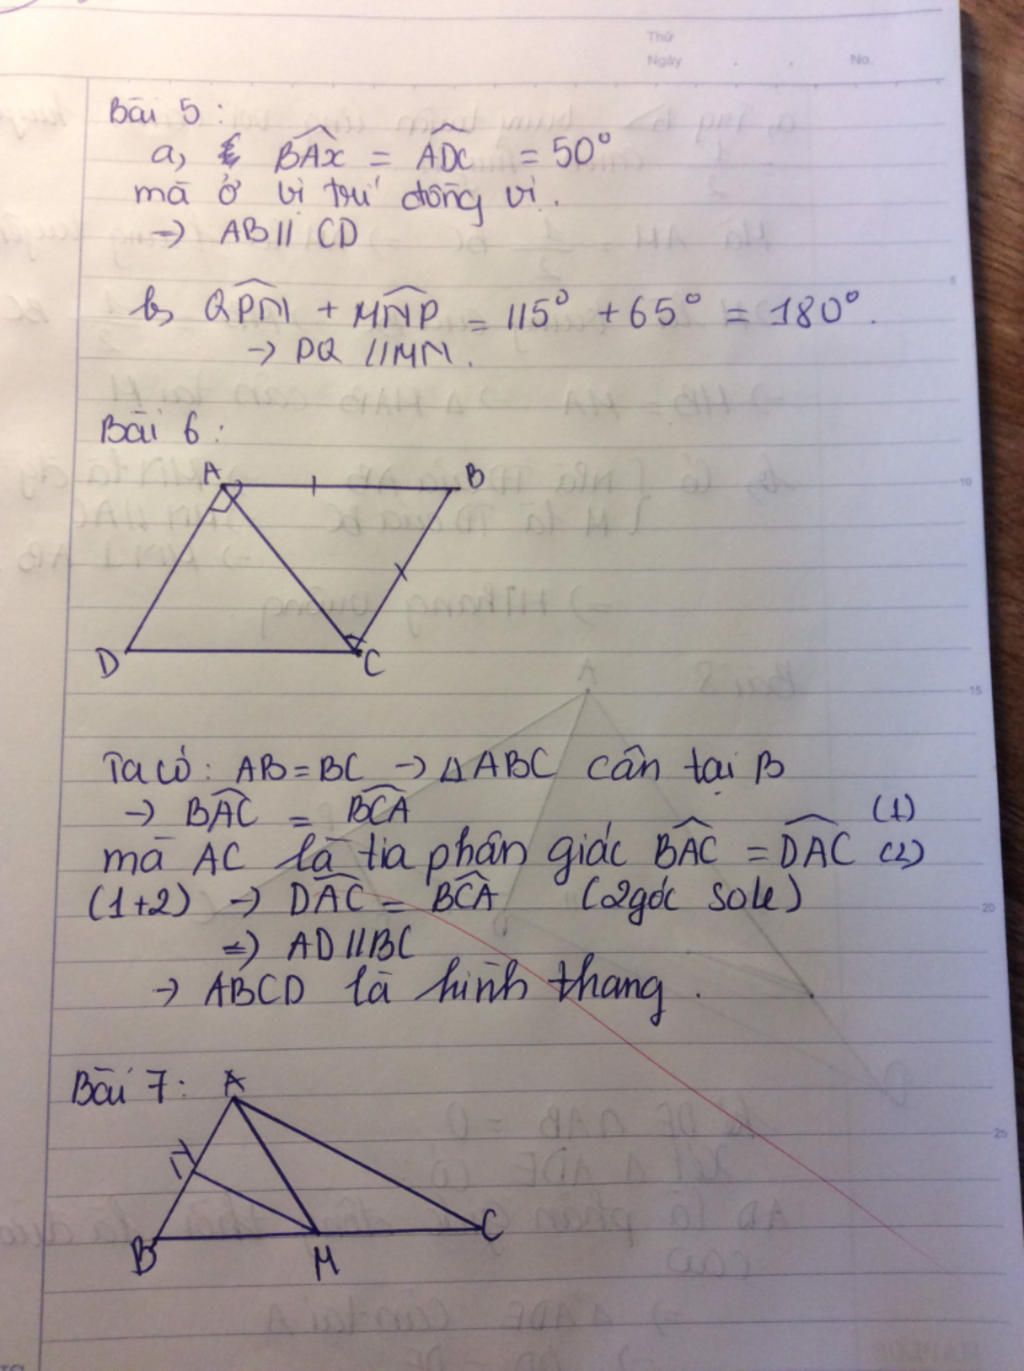 Thứ
Ngày
No.
Bài 5 :
a, BAx = ADC = 50°
mà ở vị trí đồng vị.
→ AB // CD
b, QPN + MNP = 115° + 65° = 180°.
→ PQ // MN.
Bài 6 :
A B
D C
Ta có : AB = BC → Δ ABC cân tại B
→ BAC = BCA (1)
mà AC là tia phân giác BAC = DAC (2)
(1+2) → DAC = BCA (2 góc sole)
→ AD // BC
→ ABCD là hình thang .
Bài 7 : A
N
B M C
5
10
15
20
25